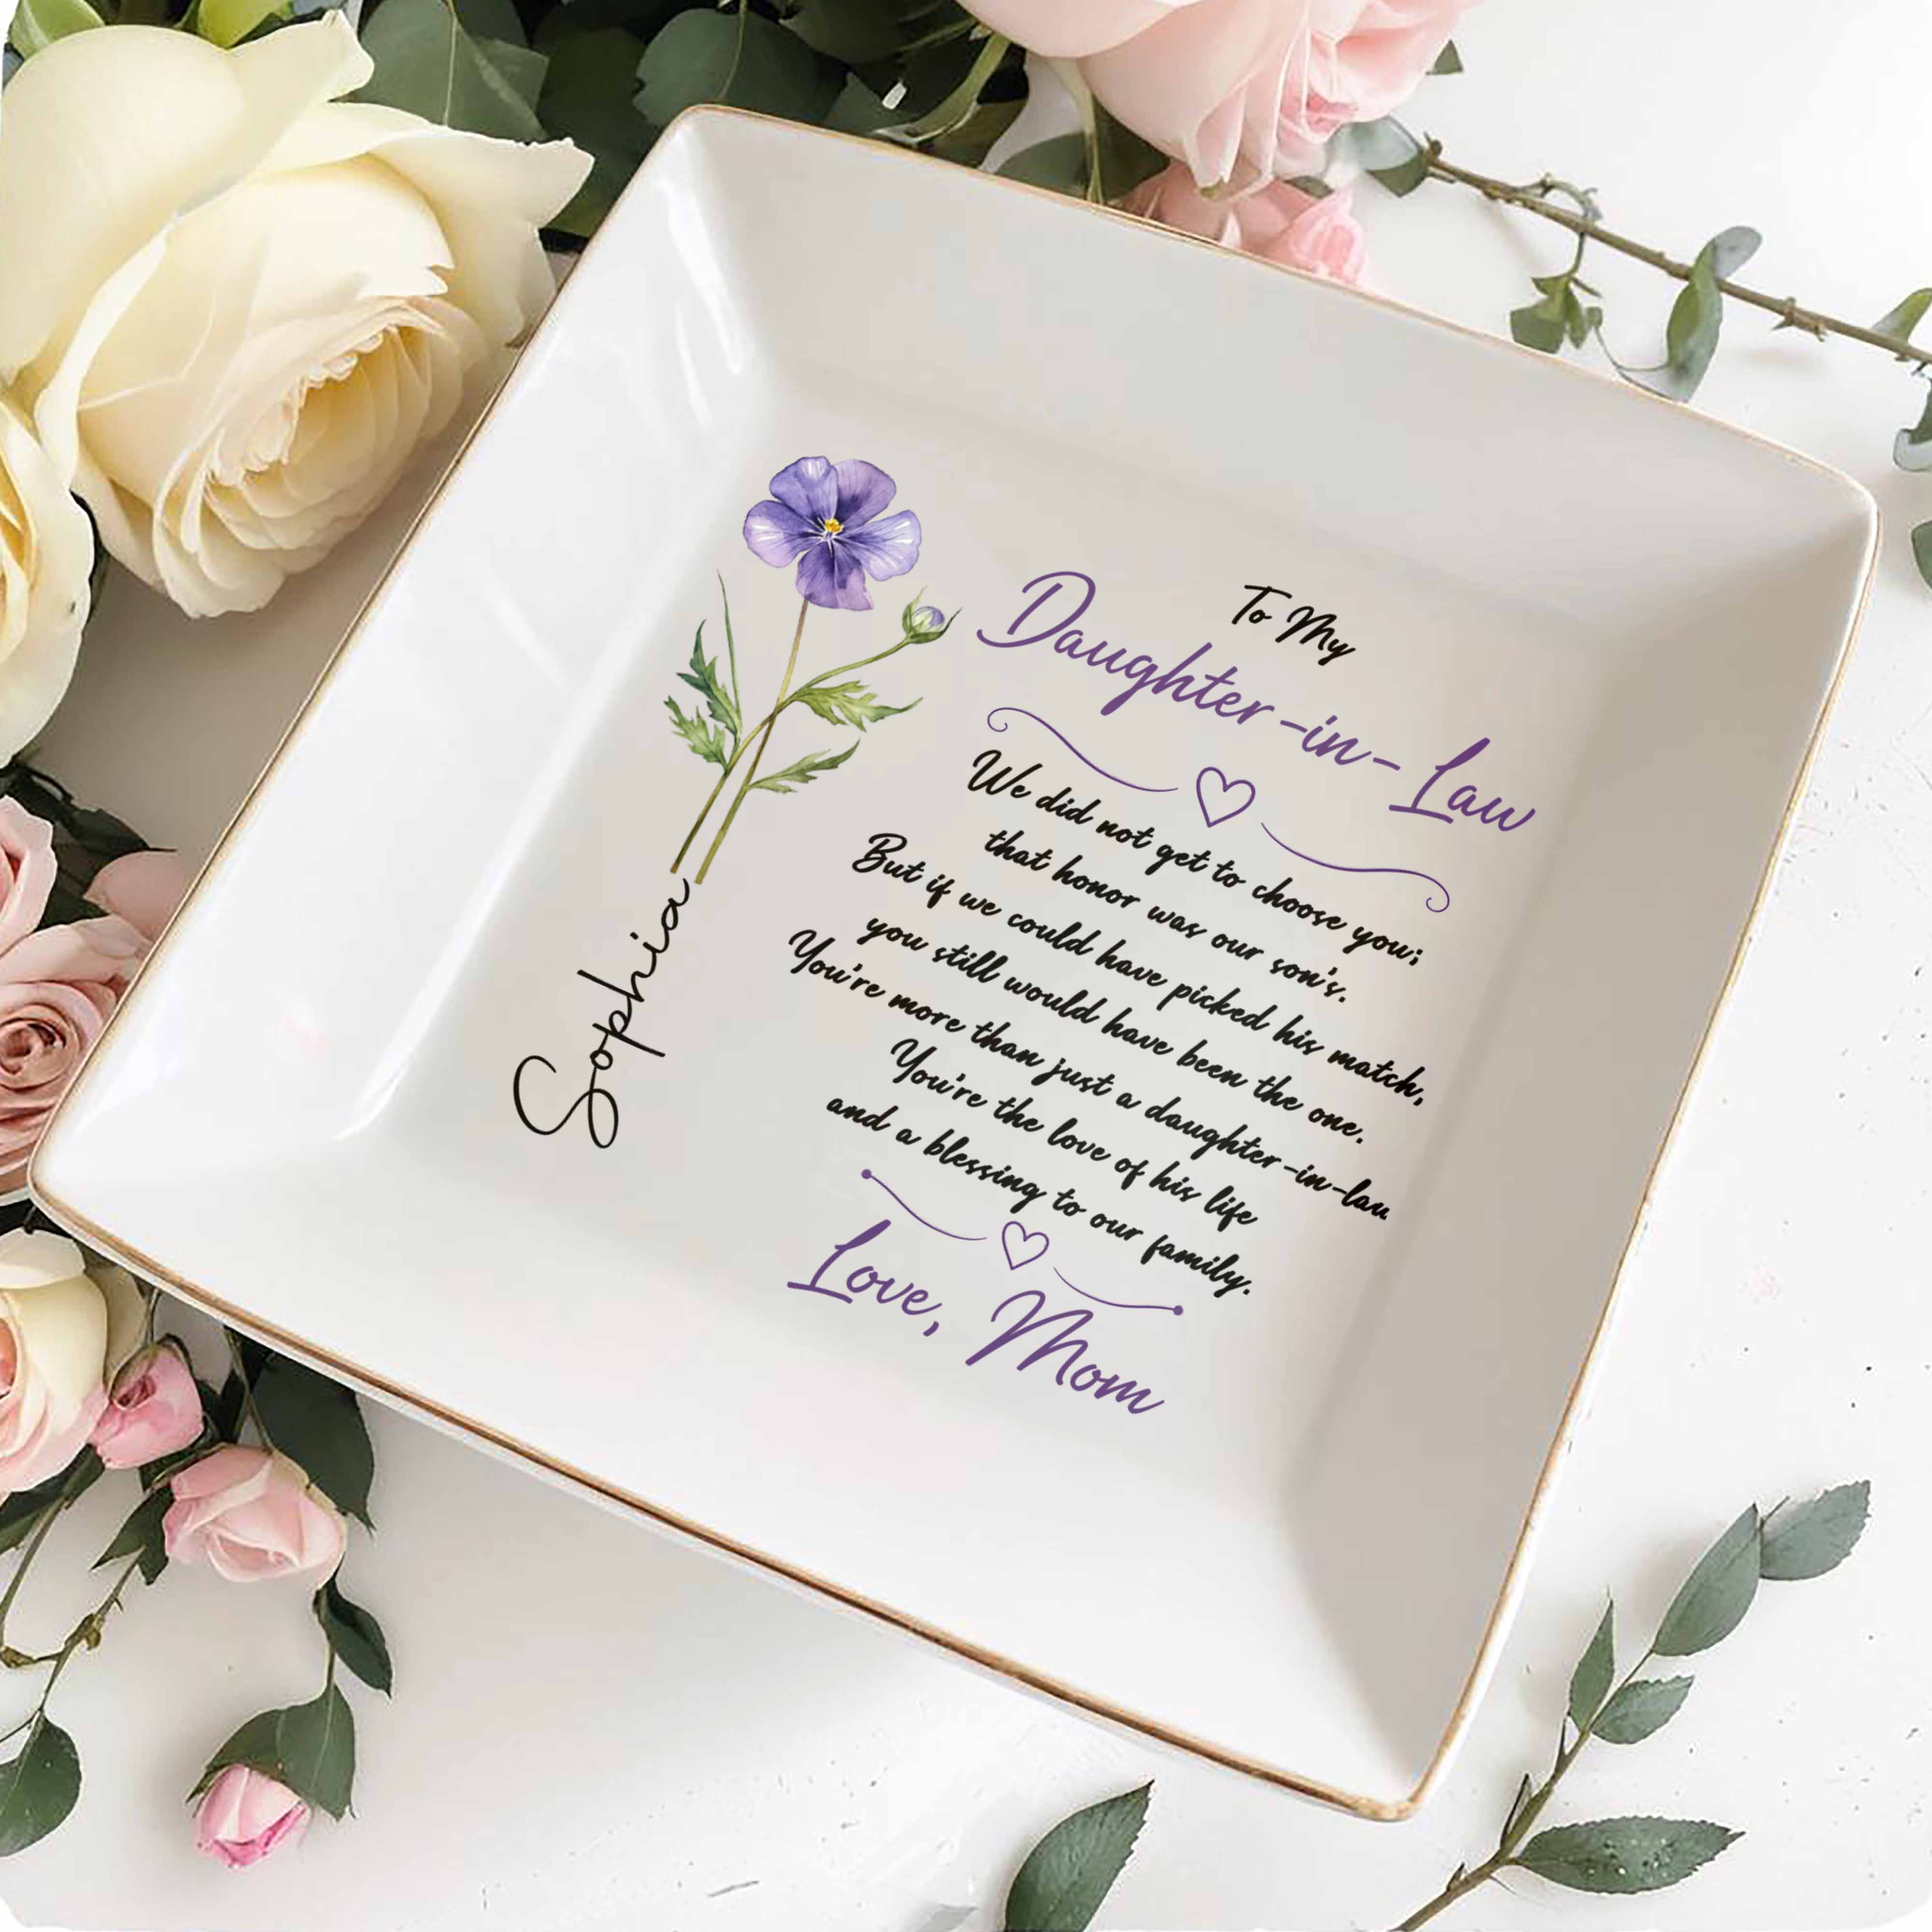 To My
Daughter-in-Law
We did not get to choose you;
that honor was our son's.
But if we could have picked his match,
you still would have been the one.
You're more than just a daughter-in-law
You're the love of his life
and a blessing to our family.
Love, Mom
Sophia